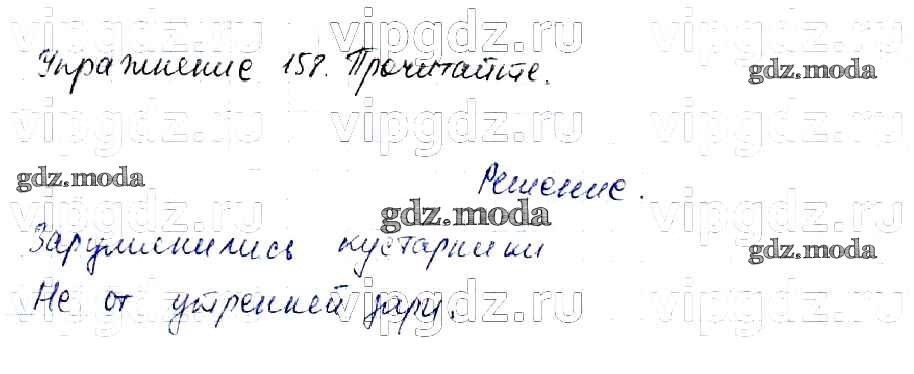 vipgdz.ru vipgdz.ru vipgdz.ru
Упражнение 158. Прочитайте.
gdz.moda
vipgdz.ru vipgdz.ru vipgdz.ru
gdz.moda
Решение.
vipgdz.ru vipgdz.ru vipgdz.ru
gdz.moda
Зарумянились кустарники
gdz.moda
Не от утренней зари.
vipgdz.ru vipgdz.ru vipgdz.ru